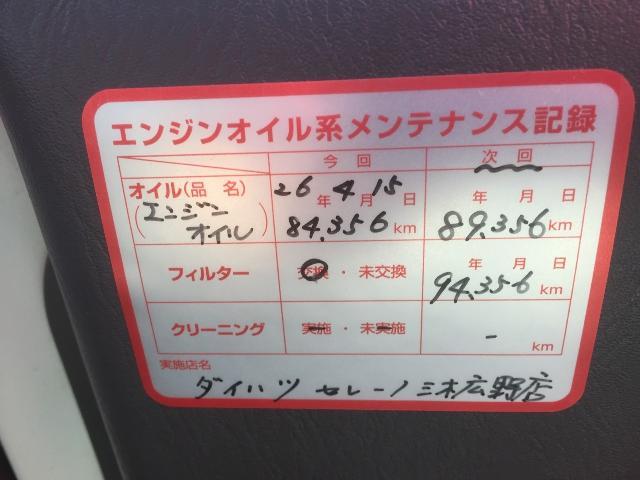 エンジンオイル系メンテナンス記録
今回 次回
オイル(品 名) 26年 4月 15日 年 月 日
(エンジンオイル) 84,356km 89,356km
フィルター 交換・未交換 年 月 日
94,356km
クリーニング 実施・未実施 - km
実施店名
ダイハツ セレーノ三木広野店